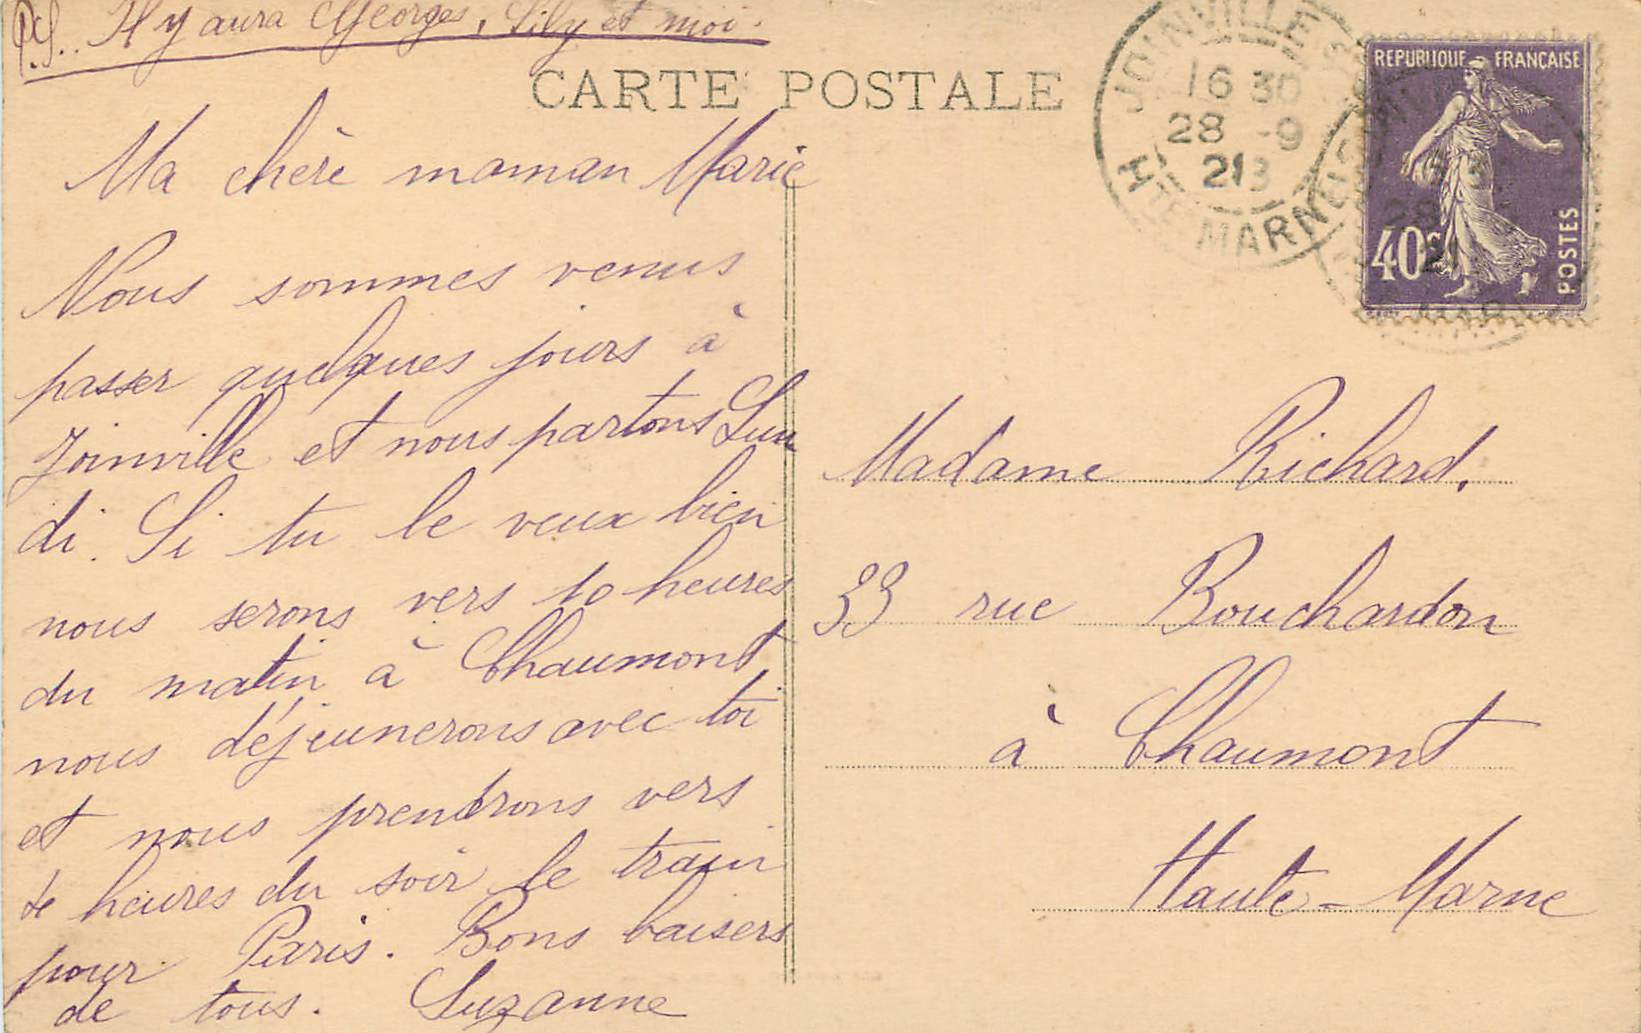 P.S. Il y aura Georges, Lily et moi.
CARTE POSTALE
Ma chère maman Marie
Nous sommes venus
passer quelques jours à
Joinville et nous partons Lun
di. Si tu le veux bien
nous serons vers 10 heures
du matin à Chaumont,
nous déjeunerons avec toi
et nous prendrons vers
heures du soir le train
pour Paris. Bons baisers
de tous. Suzanne
JOINVILLE
16 30
28 -9
21
HTE MARNE
REPUBLIQUE FRANÇAISE
40c
POSTES
Madame Richard,
33 rue Bouchardon
à Chaumont
Haute-Marne